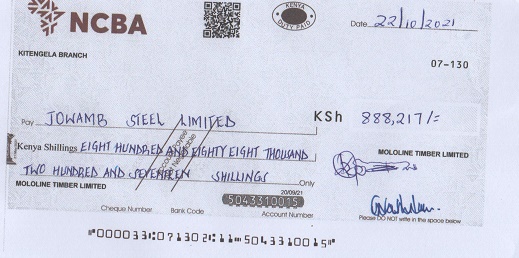 NCBA
KENYA
DUTY PAID
Date 22/10/2021
KITENGELA BRANCH
07-130
Pay JOWAMB STEEL LIMITED KSh 888,217/=
Kenya Shillings EIGHT HUNDRED AND EIGHTY EIGHT THOUSAND
TWO HUNDRED AND SEVENTEEN SHILLINGS Only
Account Payee
Negotiable
MOLOLINE TIMBER LIMITED
MOLOLINE TIMBER LIMITED
20/09/21
5043310015
Cheque Number Bank Code Account Number
Please DO NOT write in the space below
⑈000033⑆07130211⑈5043310015⑈